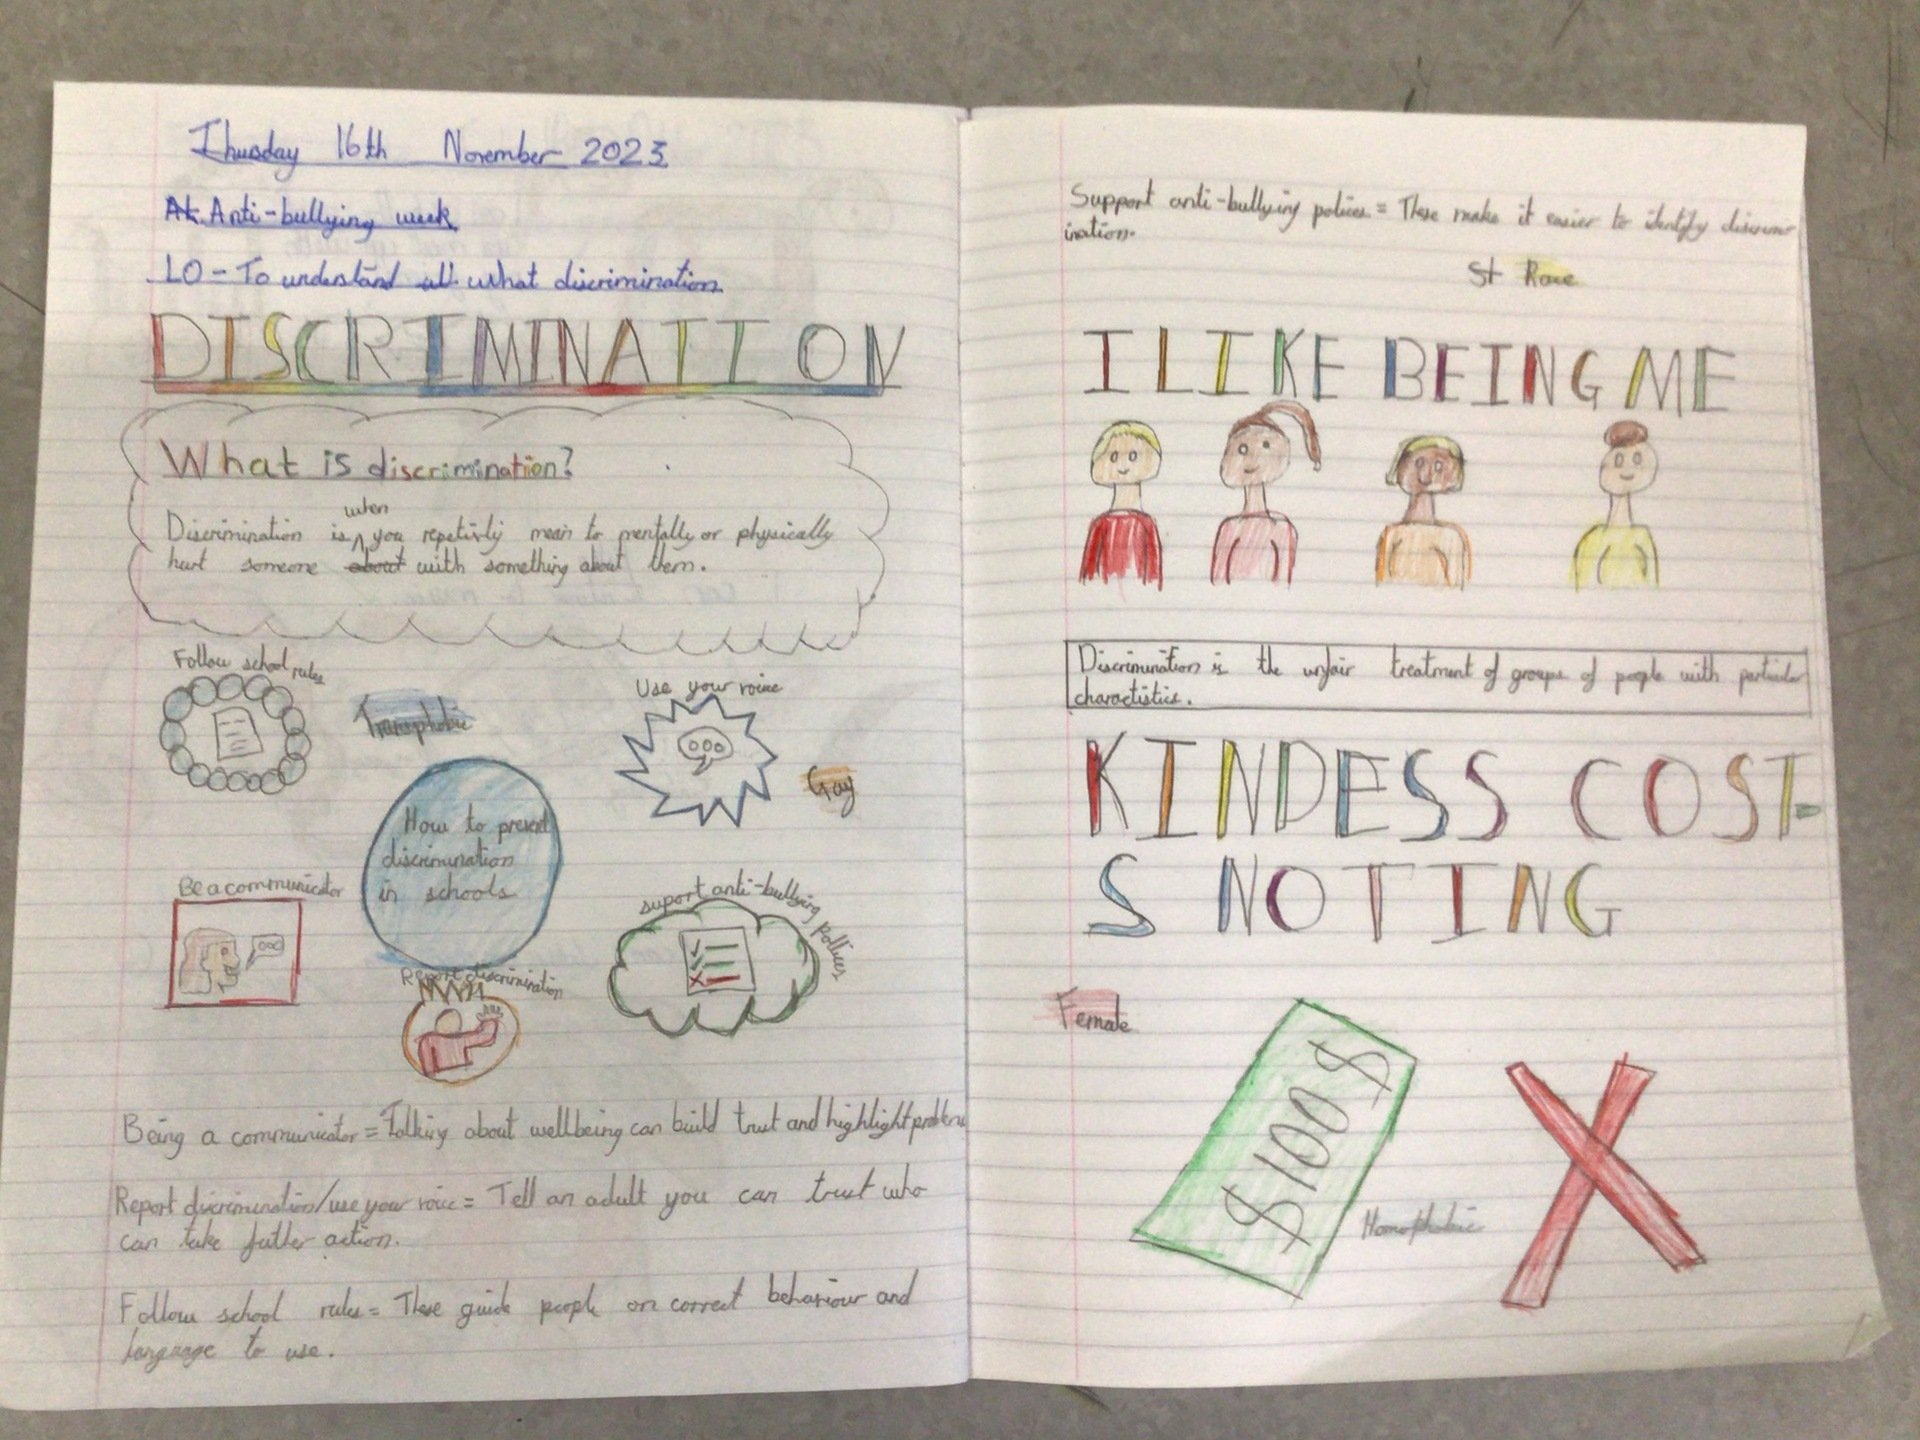 Thusday 16th November 2023
At Anti-bullying week
LO - To understand all what discrimination
DISCRIMINATION
What is discrimination?
when
Discrimination is you repetivly mean to mentally or physically
hurt someone about with something about them.
Follow school rules
Transphobic
Use your voice
Gay
How to prevent
discrimination
in schools
Be a communicator
suport anti-bullying pollices
Report discrimination
Being a communicator = Talking about wellbeing can build trust and highlight problems
Report discrimination/use your voice = Tell an adult you can trust who
can take futher action.
Follow school rules = These guide people on correct behaviour and
language to use.
Support anti-bullying polices = These make it easier to identify discrim
ination.
St Race
I LIKE BEING ME
Discrimination is the unfair treatment of groups of people with particular
charactistics.
KINDESS COST-
S NOTING
Female
$100$
Homophobic